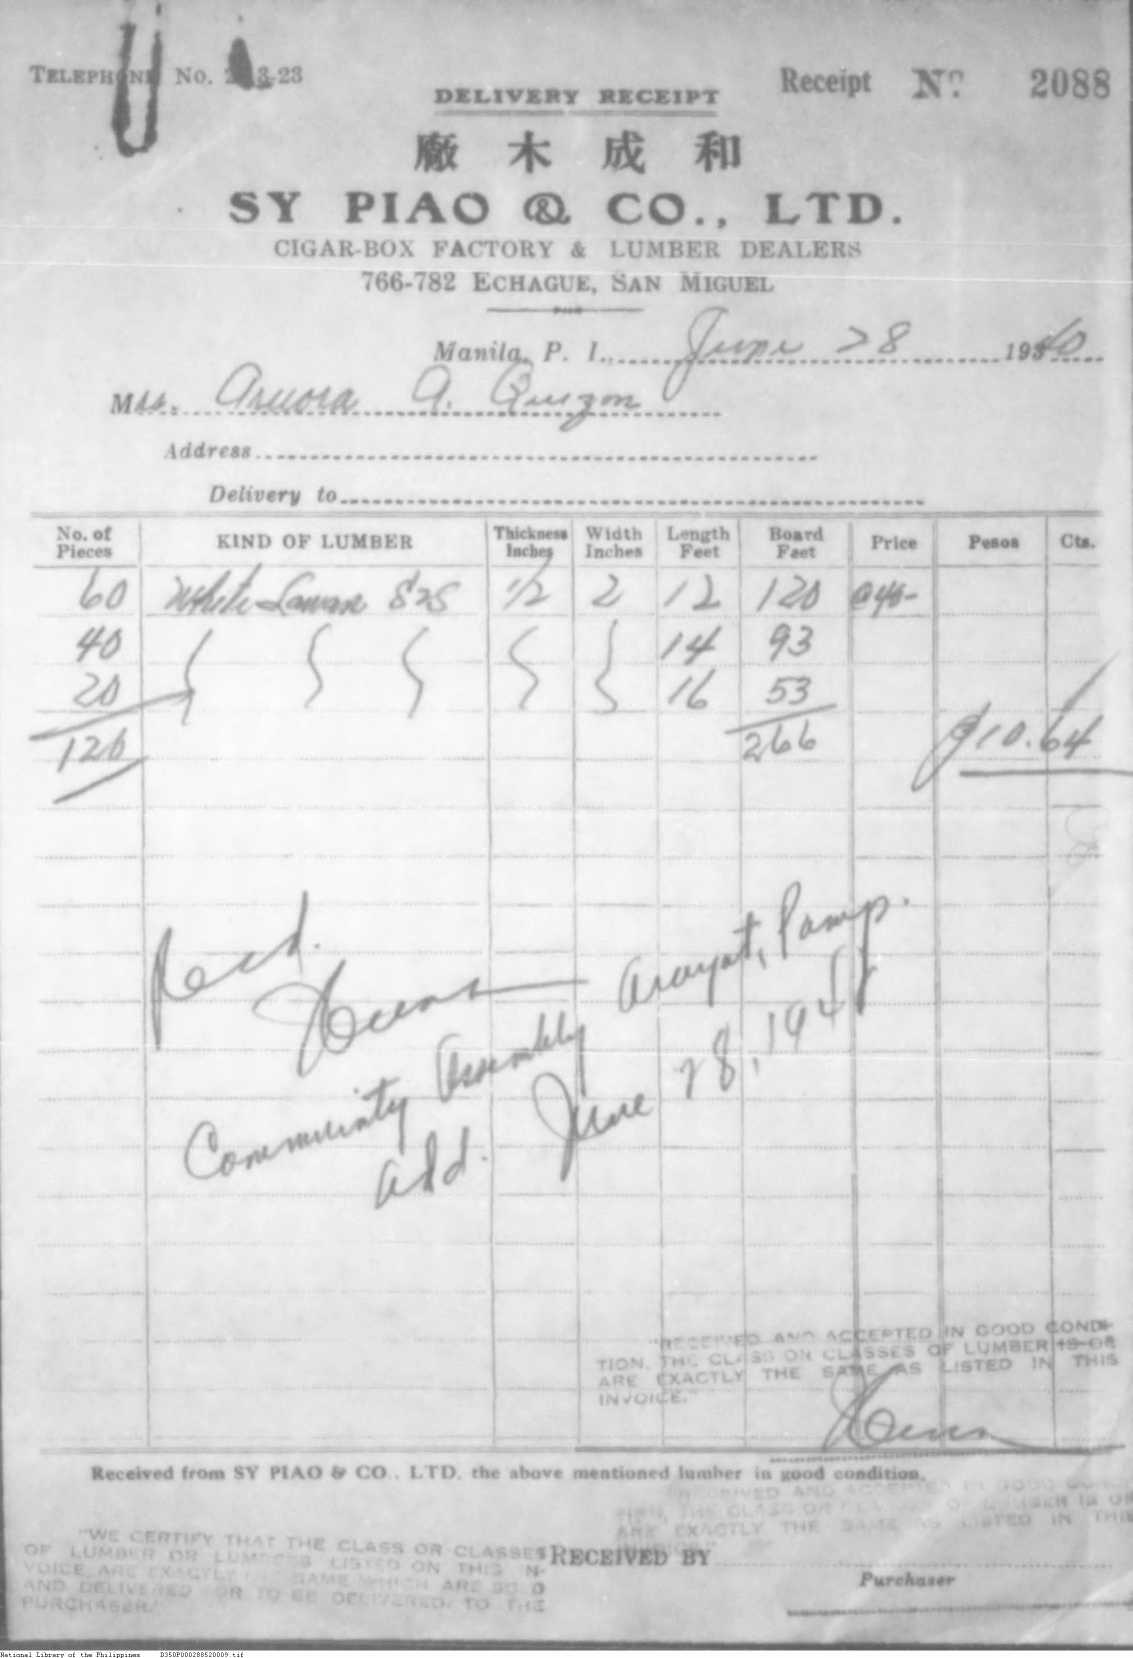 TELEPHONE No. 2 3-23
Receipt No. 2088
DELIVERY RECEIPT
廠 木 成 和
SY PIAO & CO., LTD.
CIGAR-BOX FACTORY & LUMBER DEALERS
766-782 ECHAGUE, SAN MIGUEL
Manila, P. I., June 28 1940
Mrs. Aurora A. Quezon
Address
Delivery to
No. of Pieces KIND OF LUMBER Thickness Inches Width Inches Length Feet Board Feet Price Pesos Cts.
60 White Lauan S2S 1/2 2 12 120 @40-
40 14 93
20 16 53
120 266 ₱10.64
Recd.
Arayat, Pamp.
Community Assembly
Ald. June 28, 194
"RECEIVED AND ACCEPTED IN GOOD CONDI-
TION. THE CLASS OR CLASSES OF LUMBER IS OR
ARE EXACTLY THE SAME AS LISTED IN THIS
INVOICE."
Received from SY PIAO & CO., LTD. the above mentioned lumber in good condition.
RECEIVED AND ACCEPTED IN GOOD CONDI
TION, THE CLASS OR CLASSES OF LUMBER IS OR
ARE EXACTLY THE SAME AS LISTED IN THIS
"WE CERTIFY THAT THE CLASS OR CLASSES
OF LUMBER OR LUMBERS LISTED ON THIS IN-
VOICE ARE EXACTLY THE SAME WHICH ARE SOLD
AND DELIVERED OR TO BE DELIVERED TO THE
PURCHASER."
RECEIVED BY
Purchaser
National Library of the Philippines D350P000288520009.tif